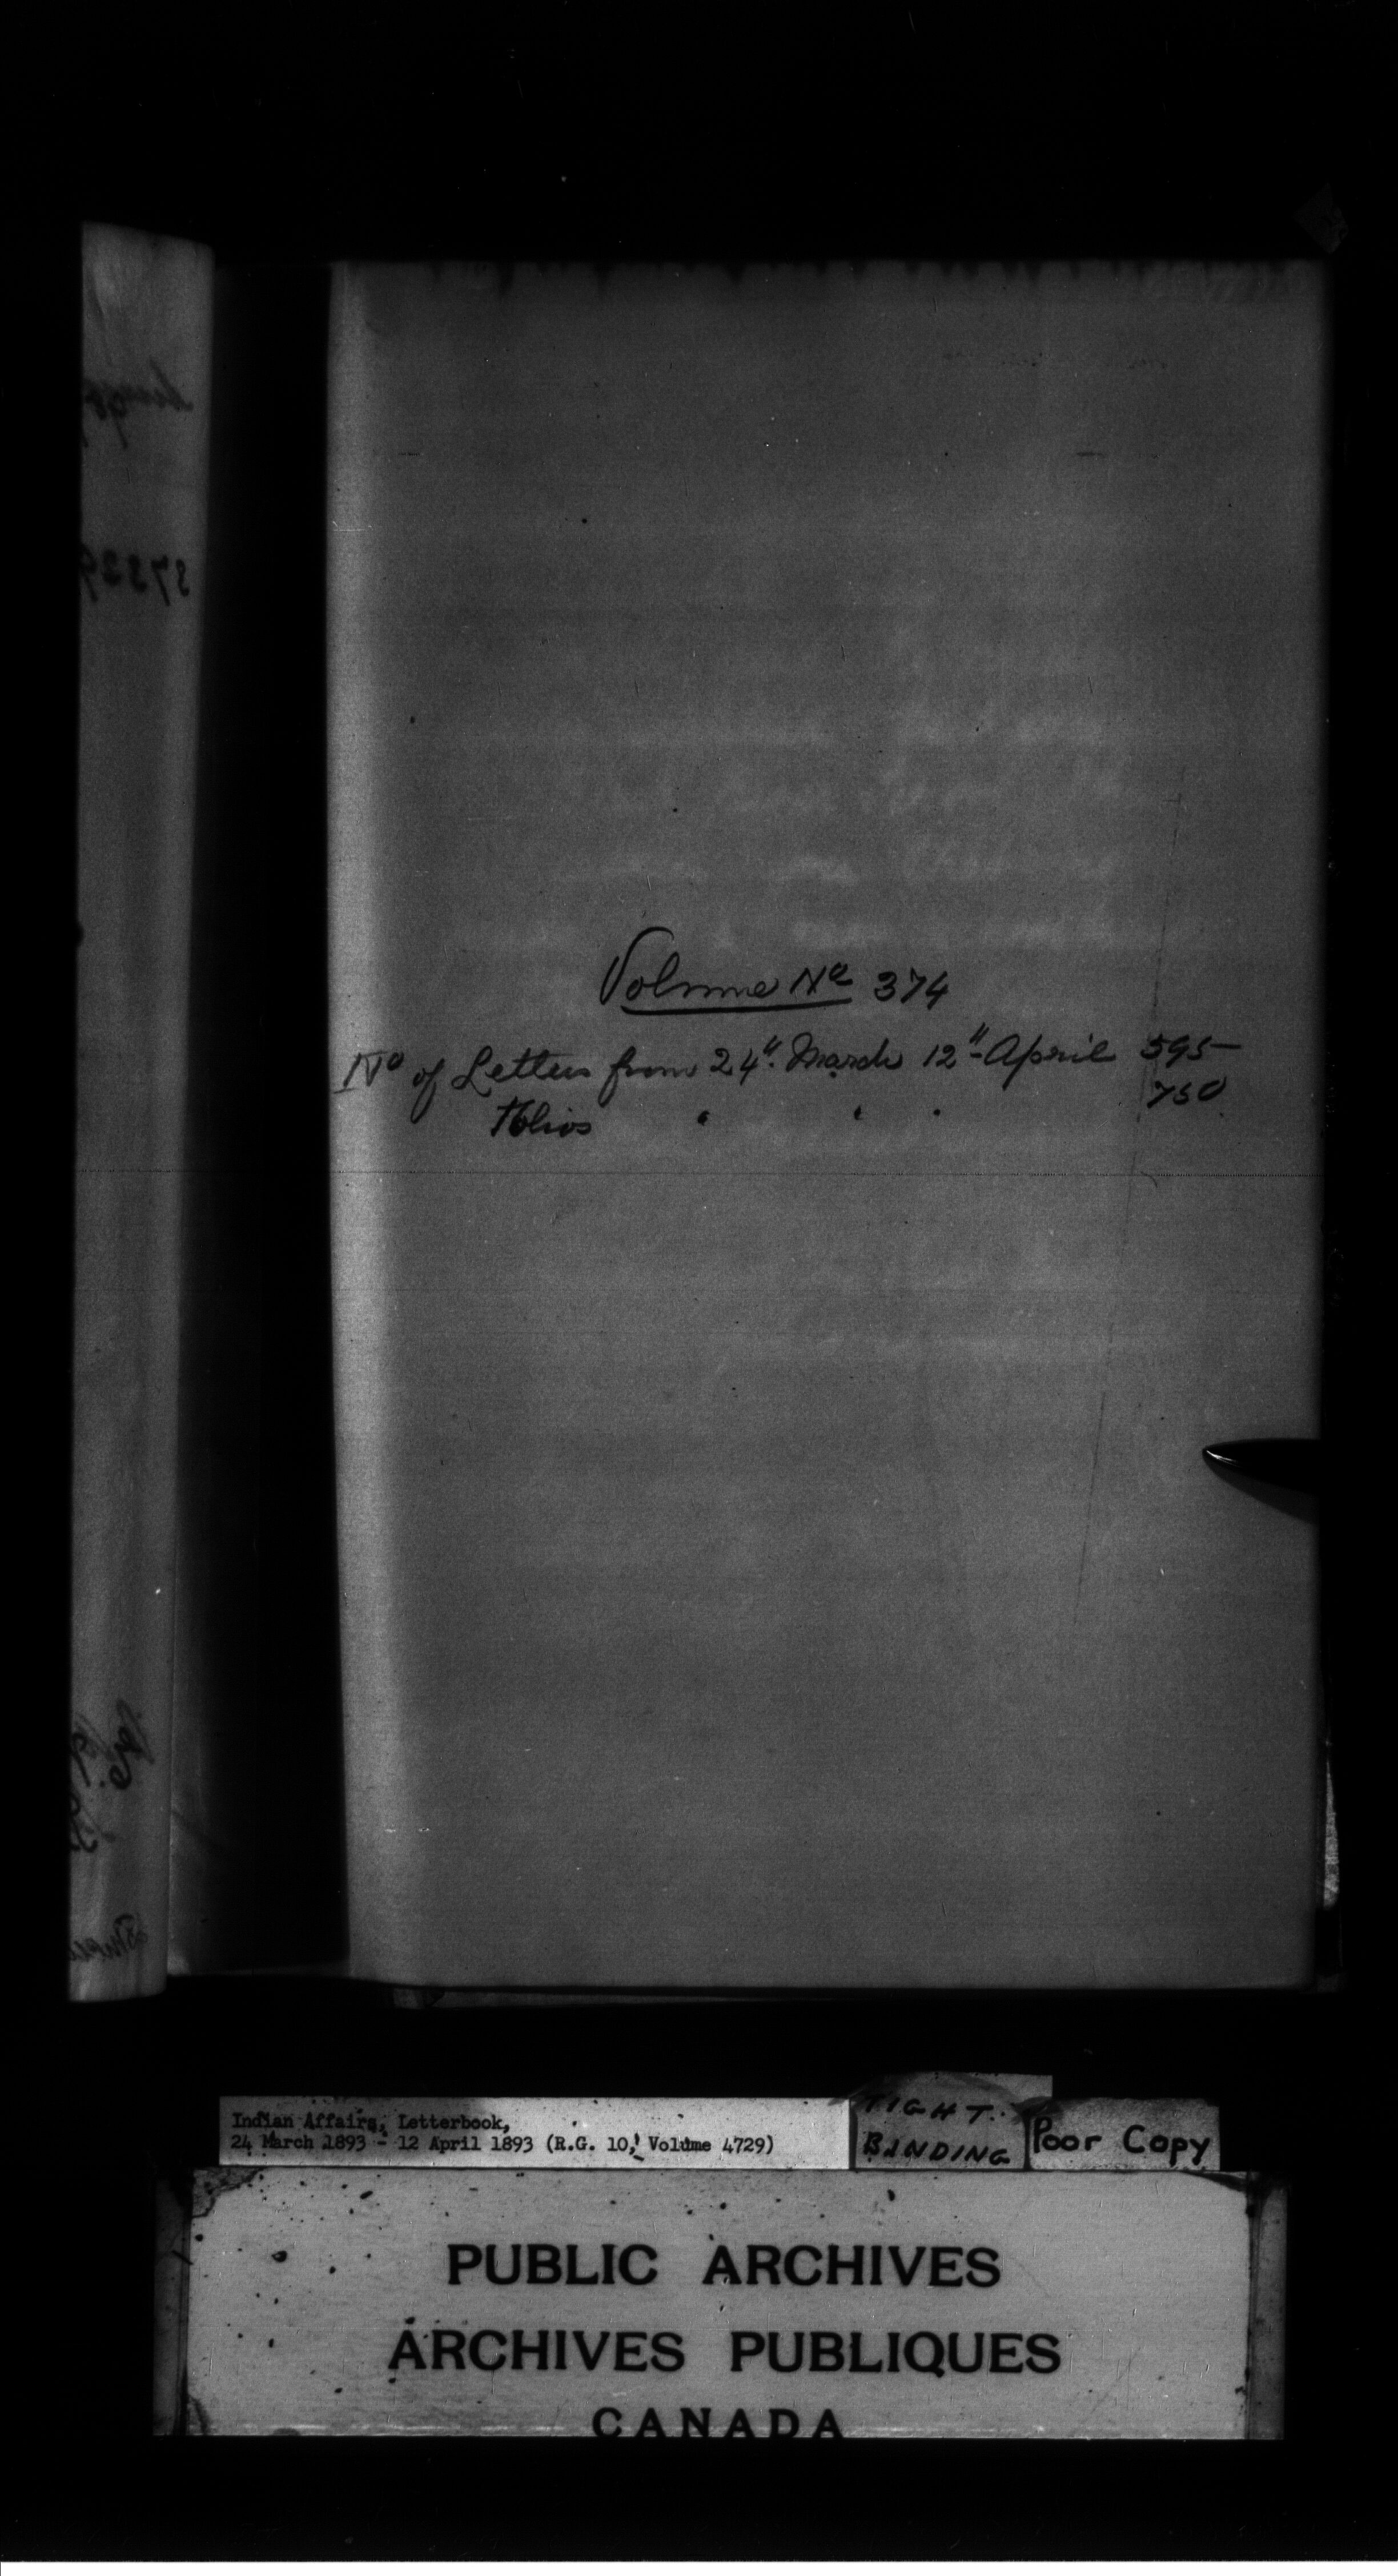 Volume No 374
No of Letters from 24" March 12" April 595
Folios " " " 750
Indian Affairs, Letterbook,
24 March 1893 - 12 April 1893 (R.G. 10, Volume 4729)
TIGHT
BINDING
Poor Copy
PUBLIC ARCHIVES
ARCHIVES PUBLIQUES
CANADA